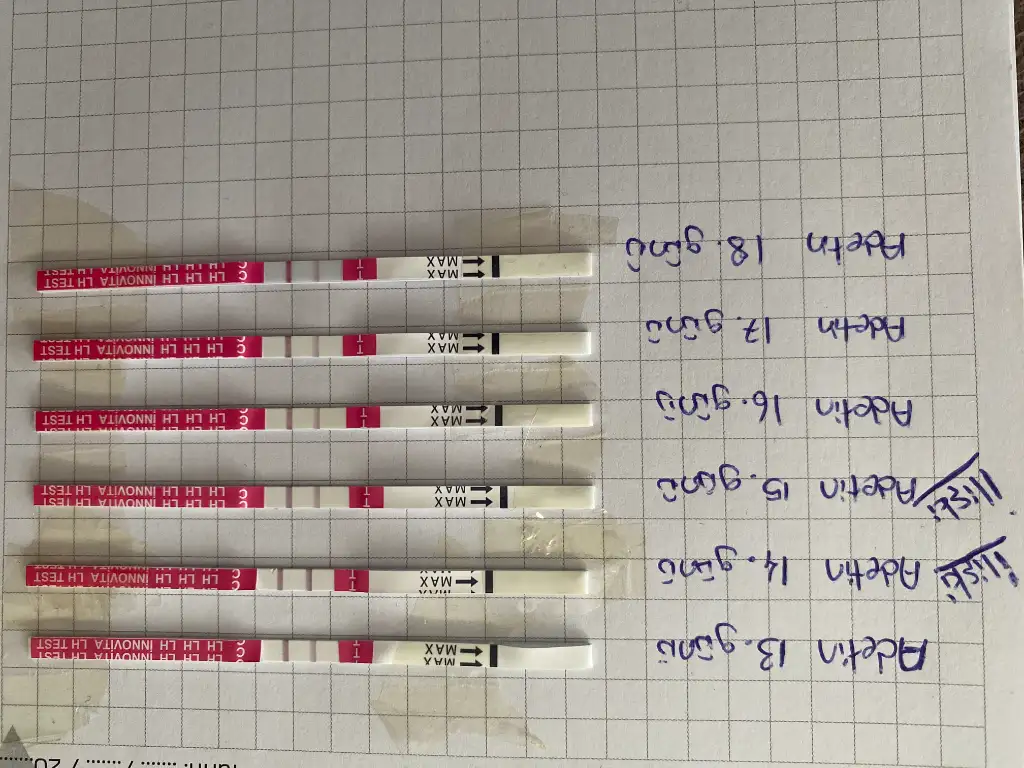 Tarih: ....... / ....... / 20.......
Adetin 13. günü MAX T C LH LH LH INNOVITA LH TEST
ilişki Adetin 14. günü MAX T C LH LH LH INNOVITA LH TEST
ilişki Adetin 15. günü MAX T C LH LH LH INNOVITA LH TEST
Adetin 16. günü MAX T C LH LH LH INNOVITA LH TEST
Adetin 17. günü MAX T C LH LH LH INNOVITA LH TEST
Adetin 18. günü MAX T C LH LH LH INNOVITA LH TEST